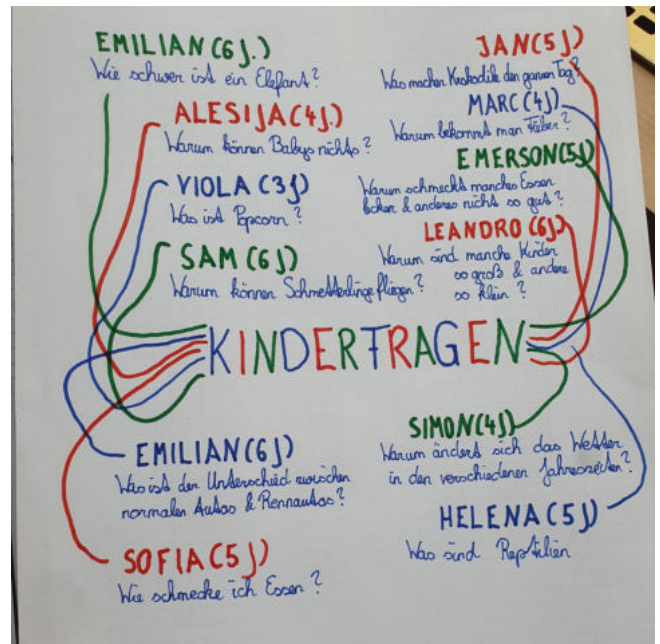 EMILIAN (6 J.)
Wie schwer ist ein Elefant?
ALESIJA (4 J.)
Warum können Babys nichts?
VIOLA (3 J)
Was ist Popcorn?
SAM (6 J)
Warum können Schmetterlinge fliegen?
JAN (5 J)
Was machen Krokodile den ganzen Tag?
MARC (4 J)
Warum bekommt man Fieber?
EMERSON (5 J)
Warum schmeckt manches Essen
lecker & anderes nicht so gut?
LEANDRO (6 J)
Warum sind manche Kinder
so groß & andere
so klein?
KINDERFRAGEN
EMILIAN (6 J)
Was ist der Unterschied zwischen
normalen Autos & Rennautos?
SOFIA (5 J)
Wie schmecke ich Essen?
SIMON (4 J)
Warum ändert sich das Wetter
in den verschiedenen Jahreszeiten?
HELENA (5 J)
Was sind Reptilien